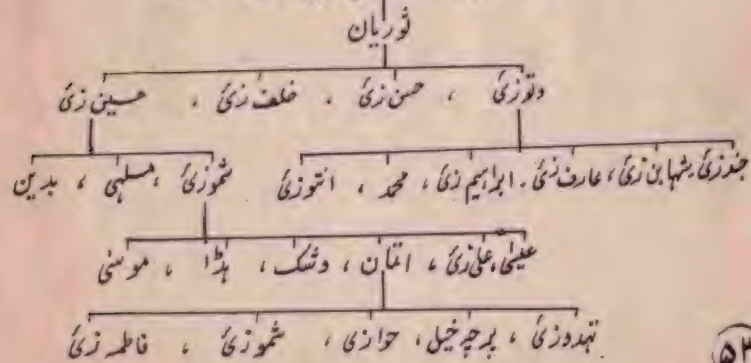 نوریان
دتوزئ ، حسن زئ ، خلف زئ ، حسین زئ
جندزئ، شہابن زئ، عارف زئ، ابراہیم زئ، محمد ، انتوزئ
شموزئ ، مسلہی ، بدین
عیسٰی، علی زئ ، اتمان ، دشک ، ہڈا ، موسٰی
پرچہ خیل ، حوازئ ، شموزئ ، فاطمہ زئ
۵۳